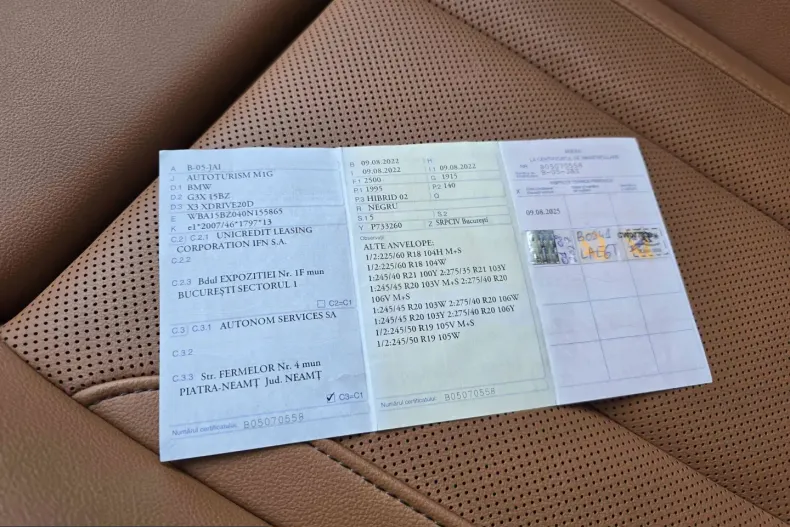 A B-05-JAI
J AUTOTURISM M1G
D.1 BMW
D.2 G3X 15BZ
D.3 X3 XDRIVE20D
E WBA15BZ040N155865
K e1*2007/46*1797*13
C.2 C.2.1 UNICREDIT LEASING
CORPORATION IFN S.A.
C.2.2
C.2.3 Bdul EXPOZITIEI Nr. 1F mun
BUCUREȘTI SECTORUL 1
C2=C1
C.3 C.3.1 AUTONOM SERVICES SA
C.3.2
C.3.3 Str. FERMELOR Nr. 4 mun
PIATRA-NEAMȚ Jud. NEAMȚ
✓ C3=C1
Numărul certificatului: B05070558
B 09.08.2022 H
I 09.08.2022 I.1 09.08.2022
F.1 2500 G 1915
P.1 1995 P.2 140
P.3 HIBRID 02 Q
R NEGRU
S.1 5 S.2
Y P733260 Z SRPCIV București
Observații
ALTE ANVELOPE:
1/2:225/60 R18 104H M+S
1/2:225/60 R18 104W
1:245/40 R21 100Y 2:275/35 R21 103Y
1:245/45 R20 103V M+S 2:275/40 R20
106V M+S
1:245/45 R20 103W 2:275/40 R20 106W
1:245/45 R20 103Y 2:275/40 R20 106Y
1/2:245/50 R19 105V M+S
1/2:245/50 R19 105W
Numărul certificatului: B05070558
ANEXA
LA CERTIFICATUL DE ÎNMATRICULARE
B05070558
B-05-JAI
09.08.2025